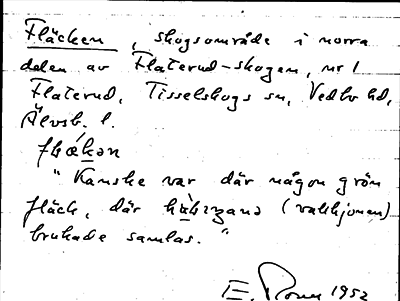 Fläcken, skogsområde i norra
delen av Flaterud-skogen, nr 1
Flaterud, Tisselskogs sn, Vedbo hd,
Älvsb. l.
"Kanske var där någon grön
fläck, där (vallhjonen)
brukade samlas."
E. 1952